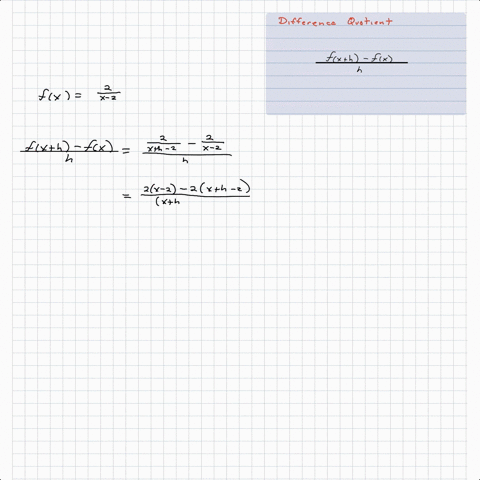 Difference Quotient
f(x+h) - f(x) / h
f(x) = 2 / x-2
f(x+h) - f(x) / h = 2 / x+h-2 - 2 / x-2 / h
= 2(x-2) - 2(x+h-2) / (x+h